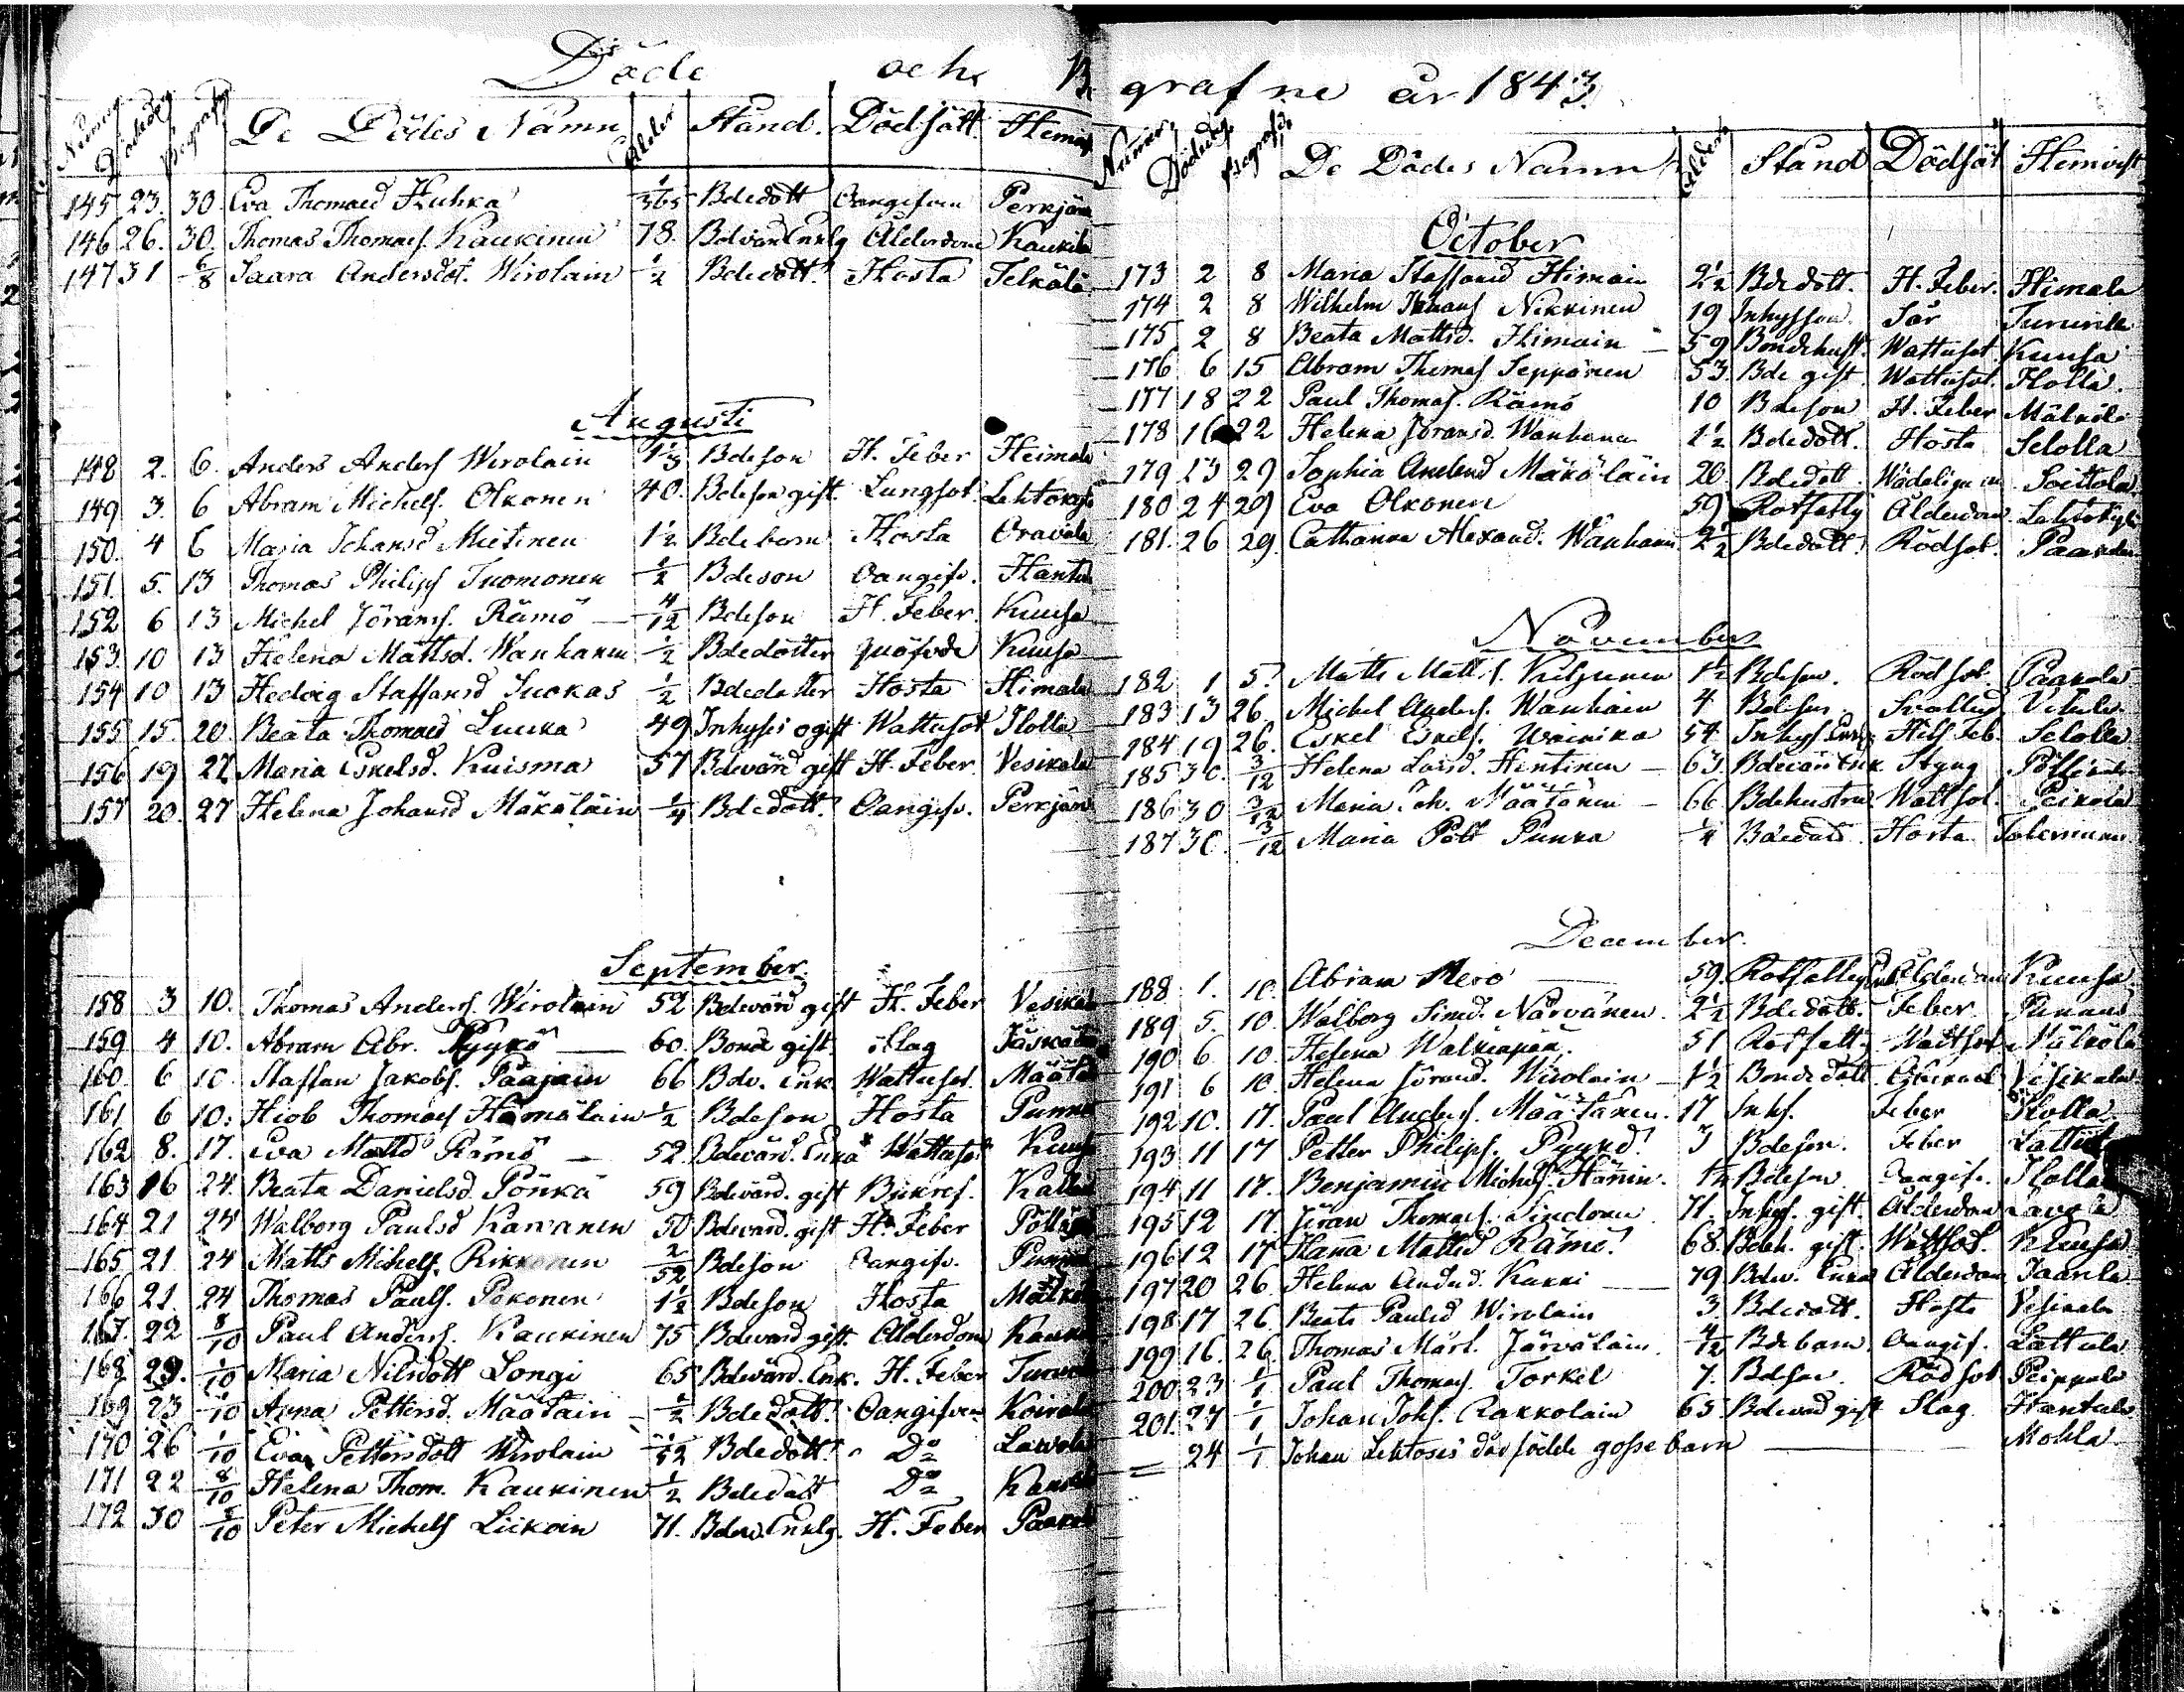 Döde och Be
Numro Dödedag Begrafd De Dödes Namn Ålder Stånd. Dödsätt Hemvist
145 23. 30 Eva Thomasd Huhka 1/365 Bdedott Oangifven Perkjär
146 26. 30. Thomas Thomass. Kaukinen 78. Bdevärd Enklg Ålderdom Kaukila
147 31 6/8 Saara Andersdot. Wirolain 1/2 Bdedott. Hosta Telkälä
Augusti
148 2. 6. Anders Anders Wirolain 1 1/3 Bdeson H. Feber Heimala
149 3. 6 Abram Michels. Olkonen 40. Bdeson gift. Lungsot. Lehtokyl
150. 4 6 Maria Johansd Mietinen 1 1/2 Bdebarn Hosta Oravala
151. 5. 13 Thomas Philips Tuomonen 1/2 Bdeson Oangifv. Hantu
152 6 13 Michel Jörans. Rämö 4/12 Bdeson H. Feber. Kuusa
153. 10 13 Helena Mattsd. Wanhanen 1/2 Bdedotter Kuusa
154 10 13 Hedvig Staffansd Suokas 1/2 Bdedotter Hosta Himala
155 15. 20. Beata Thomasd Luuka 49 Inhyses ogift Wattusot Ilolla
156 19 27 Maria Eskelsd. Kuisma 57 Bdevärd gift H. Feber. Vesikala
157 20. 27 Helena Johansd Mäkäläin 1/4 Bdedott. Oangifv. Perkjär
September.
158 3 10. Thomas Anders. Wirolain 52 Bdevärd gift H. Feber Vesikala
159 4 10. Abram Abr. Pyykö 60. Bonde gift. Slag
160. 6 10. Staffan Jakobs. Pääjain 66 Bdv. Enk. Wattusot. Määtä
161 6 10. Hiob Thomass Hämäläin 1/2 Bdeson Hosta Punnu
162 8. 17. Eva Mattsd Rämö 52. Bdevärd. Enka Wattusot Kuusa
163 16 24. Beata Danielsd. Pönkä 59 Bdevärd. gift
164 21 24 Walborg Paulsd Karvanen 50 Bdevärd. gift H. Feber Pölla
165 21. 24 Matts Michels. 2/52 Bdeson Oangifv.
166 21. 24 Thomas Pauls. Pokonen 1 1/2 Bdeson Hosta Mälkö
167. 22 8/10 Paul Anders. Kaukinen 75 Bdevärd gift. Ålderdom Kauk
168 29. 1/10 Maria Nilsdott Longi 65 Bdevärd. Enk. H. Feber
169 23 1/10 Anna Pettersd. Määtäin 1/2 Bdedott. Oangifven Koirala
170 26 1/10 Eva Pettersdott Wirolain 1/52 Bdedott. Do Lavola
171 22 8/10 Helena Thom. Kaukinen 1/2 Bdedott Do
172 30 8/10 Peter Michels Liikoin 71. Bdev. Enklg. H. Feber
grafne år 1843.
Numro Dödedag Begrafd De Dödes Namn Ålder Stånd Dödsät Hemvist
October
173 2 8 Maria Staffansd Himain 2 1/2 Bdedott. H. Feber. Himala
174 2 8 Wilhelm Nikkinen 19 Inhysson. Sår
175. 2 8 Beata Mattsd. Himain 59 Bondehust. Wattusot Kuusa
176 6 15 Abram Thomas Seppänen 53. Bde gift. Wattusot. Ilolla.
177 18 22 Paul Thomas. Rämö 10 Bdeson H. Feber Mälkölä
178 16 22 Helena Jöransd. Wanhanen 1 1/2 Bdedott. Hosta Selolla
179 23 29 Sophia Mäkäläin 20. Bdedott. Soittola
180 24 29 Eva Olkonen 59 Rotfattig Ålderdom Lehtokylä
181. 26 29. Catharina Alexand. Wanhanen 2 1/2 Bdedott. Rödsot. Paakola
November
182 1 5. Matts Matts. 1 1/2 Bdeson. Rödsot. Paakola
183 13 26. Michel Anders. Wanhain 4 Bdeson Vitula
184 19 26. Eskel Eskels. Wainika 54 Inhys. Enk. Hits. Feb. Selolla
185 30. 3/12 Helena Larsd. Hentinen 63. Bdevärd Enk. Styng
186 30 3/12 Maria Joh. Määtänen 66 Bdehustru Wattsot. Peikola
187 30. 3/12 Maria Pett Punka 1/4 Bdedott. Hosta
December.
188. 1. 10. Abram Mero 59. Rotfattig Enk. Ålderdom Kuusa
189 5. 10. Walborg Simd. Närvänen. 2 1/2 Bdedott. Feber.
190 6. 10. Helena Walkiapää. 51 Rotfattig Wattsot. Mälkölä
191 6 10. Helena Jörand. Wirolain 1 1/2 Bondedott. Vesikala
192 10. 17. Paul Anders. Määtänen. 17 Inhs. Feber Ilolla
193 11 17 Petter Philips. Pyykö 3 Bdeson. Feber Lattula
194 11 17. Benjamin Michels. Hänin. Bdeson Oangifv. Ilolla
195 12 17. Jöran Thomass. Sindonen 71. Inhys. gift. Ålderdom Lavola
196 12 17 Hanna Mattsd Rämö. 68. Bdeh. gift. Wattsot. Kuusa
197 20 26. Helena Andersd. Kukki 79. Bdev. Enka Ålderdom Jaarila
198 17 26. Beata Paulsd Wirolain 3. Bdedott. Hosta Vesikala
199 16. 26. Thomas Mårt. Järvälain. 4/12 Bdebarn. Oangif. Lattula
200. 23 1/1 Paul Thomas. Torkel 7. Bdeson. Rödsot Peippola
201. 27 1/1 Johan Johs. Rakkolain 65. Bdevärd gift Slag Hantula
24 1/1 Johan Lehtosis dödfödde gossebarn Mohla